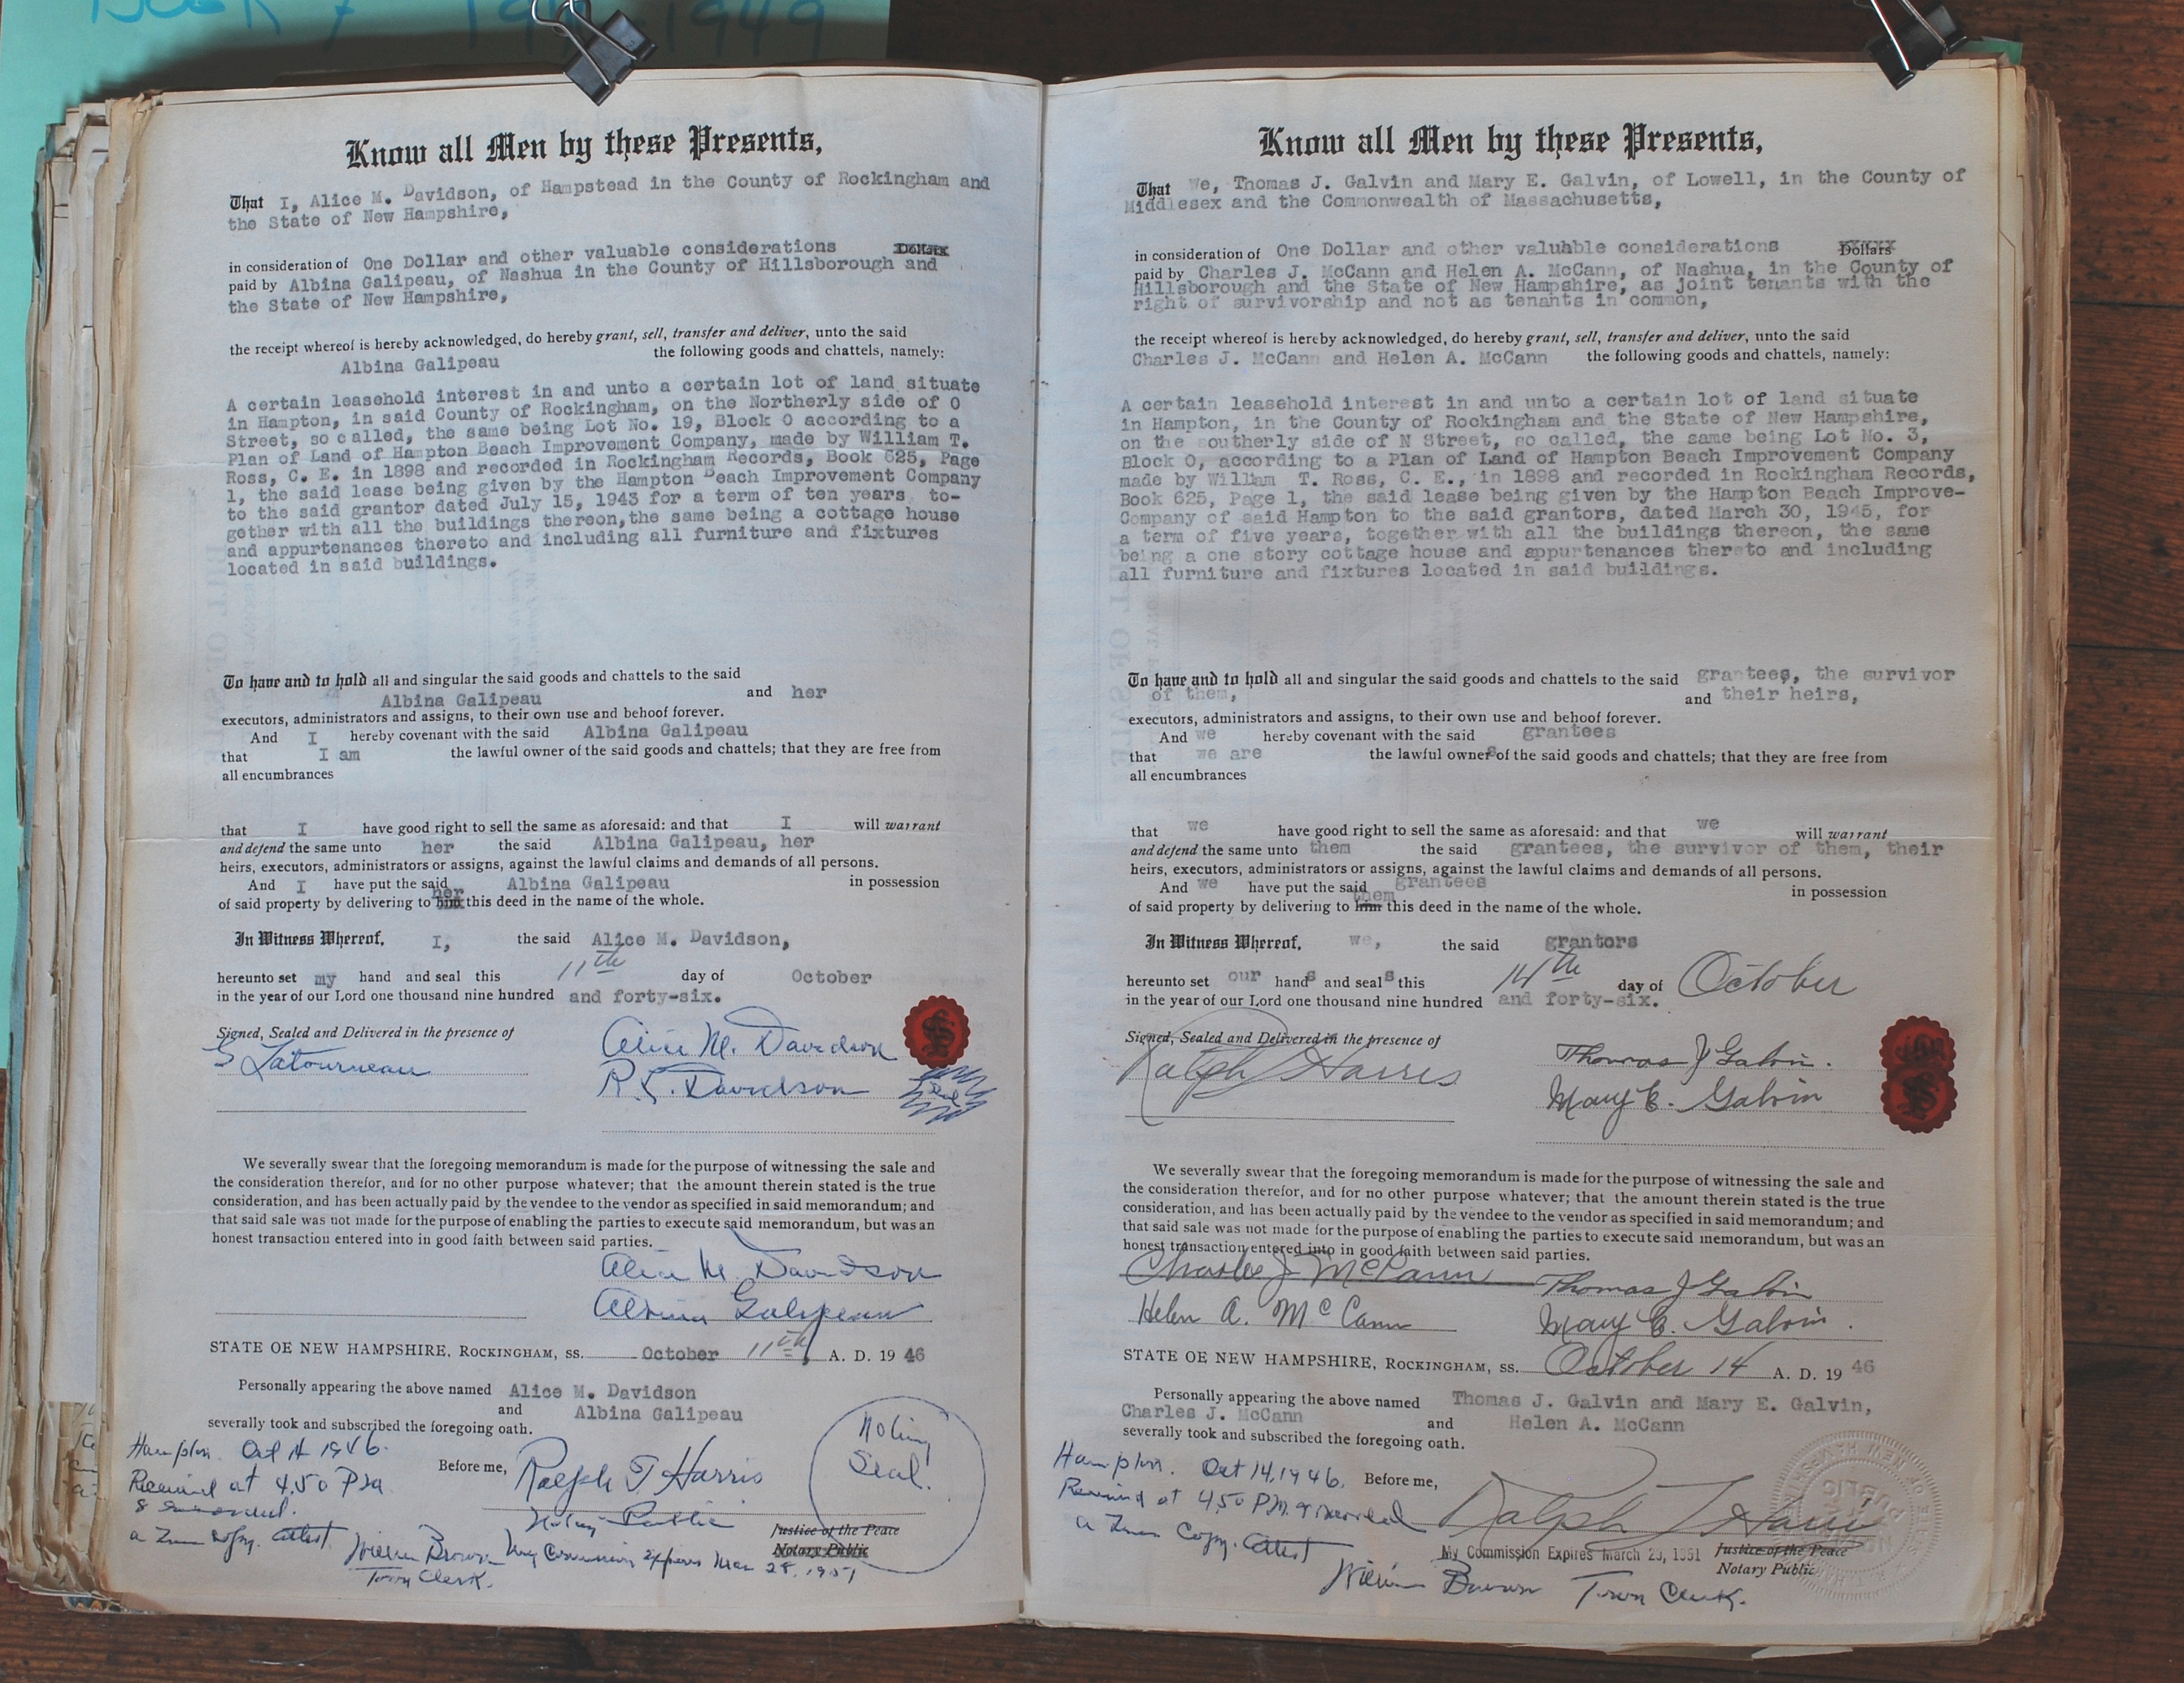 Book 7 194 1949
Know all Men by these Presents,
That I, Alice M. Davidson, of Hampstead in the County of Rockingham and
the State of New Hampshire,
in consideration of One Dollar and other valuable considerations Dollars
paid by Albina Galipeau, of Nashua in the County of Hillsborough and
the State of New Hampshire,
the receipt whereof is hereby acknowledged, do hereby grant, sell, transfer and deliver, unto the said
Albina Galipeau the following goods and chattels, namely:
A certain leasehold interest in and unto a certain lot of land situate
in Hampton, in said County of Rockingham, on the Northerly side of O
Street, so called, the same being Lot No. 19, Block O according to a
Plan of Land of Hampton Beach Improvement Company, made by William T.
Ross, C. E. in 1898 and recorded in Rockingham Records, Book 625, Page
1, the said lease being given by the Hampton Beach Improvement Company
to the said grantor dated July 15, 1943 for a term of ten years to-
gether with all the buildings thereon,the same being a cottage house
and appurtenances thereto and including all furniture and fixtures
located in said buildings.
To have and to hold all and singular the said goods and chattels to the said
Albina Galipeau and her
executors, administrators and assigns, to their own use and behoof forever.
And I hereby covenant with the said Albina Galipeau
that I am the lawful owner of the said goods and chattels; that they are free from
all encumbrances
that I have good right to sell the same as aforesaid: and that I will warrant
and defend the same unto her the said Albina Galipeau, her
heirs, executors, administrators or assigns, against the lawful claims and demands of all persons.
And I have put the said Albina Galipeau in possession
of said property by delivering to him her this deed in the name of the whole.
In Witness Whereof, I, the said Alice M. Davidson,
hereunto set my hand and seal this 11th day of October
in the year of our Lord one thousand nine hundred and forty-six.
Signed, Sealed and Delivered in the presence of
S Latourneau Alice M. Davidson
R. L. Davidson Seal
We severally swear that the foregoing memorandum is made for the purpose of witnessing the sale and
the consideration therefor, and for no other purpose whatever; that the amount therein stated is the true
consideration, and has been actually paid by the vendee to the vendor as specified in said memorandum; and
that said sale was not made for the purpose of enabling the parties to execute said memorandum, but was an
honest transaction entered into in good faith between said parties.
Alice M. Davidson
Albina Galipeau
STATE OE NEW HAMPSHIRE, ROCKINGHAM, SS. October 11th, A. D. 1946
Personally appearing the above named Alice M. Davidson
and Albina Galipeau
severally took and subscribed the foregoing oath.
Before me, Ralph T Harris
Notary Public
Justice of the Peace
Notary Public
My Commission Expires Mar 28, 1951
Notary
Seal.
Hampton. Oct 14 1946.
Received at 4.50 P M
& recorded.
a True Copy. Attest
William Brown
Town Clerk.
Know all Men by these Presents,
That We, Thomas J. Galvin and Mary E. Galvin, of Lowell, in the County of
Middlesex and the Commonwealth of Massachusetts,
in consideration of One Dollar and other valuable considerations Dollars
paid by Charles J. McCann and Helen A. McCann, of Nashua, in the County of
Hillsborough and the State of New Hampshire, as joint tenants with the
right of survivorship and not as tenants in common,
the receipt whereof is hereby acknowledged, do hereby grant, sell, transfer and deliver, unto the said
Charles J. McCann and Helen A. McCann the following goods and chattels, namely:
A certain leasehold interest in and unto a certain lot of land situate
in Hampton, in the County of Rockingham and the State of New Hampshire,
on the southerly side of N Street, so called, the same being Lot No. 3,
Block O, according to a Plan of Land of Hampton Beach Improvement Company
made by William T. Ross, C. E., in 1898 and recorded in Rockingham Records,
Book 625, Page 1, the said lease being given by the Hampton Beach Improve-
Company of said Hampton to the said grantors, dated March 30, 1945, for
a term of five years, together with all the buildings thereon, the same
being a one story cottage house and appurtenances thereto and including
all furniture and fixtures located in said buildings.
To have and to hold all and singular the said goods and chattels to the said grantees, the survivor
of them, and their heirs,
executors, administrators and assigns, to their own use and behoof forever.
And we hereby covenant with the said grantees
that we are the lawful owners of the said goods and chattels; that they are free from
all encumbrances
that we have good right to sell the same as aforesaid: and that we will warrant
and defend the same unto them the said grantees, the survivor of them, their
heirs, executors, administrators or assigns, against the lawful claims and demands of all persons.
And we have put the said grantees in possession
of said property by delivering to him them this deed in the name of the whole.
In Witness Whereof, we, the said grantors
hereunto set our hands and seals this 14th day of October
in the year of our Lord one thousand nine hundred and forty-six.
Signed, Sealed and Delivered in the presence of
Ralph Harris Thomas J Galvin.
Mary E. Galvin
We severally swear that the foregoing memorandum is made for the purpose of witnessing the sale and
the consideration therefor, and for no other purpose whatever; that the amount therein stated is the true
consideration, and has been actually paid by the vendee to the vendor as specified in said memorandum; and
that said sale was not made for the purpose of enabling the parties to execute said memorandum, but was an
honest transaction entered into in good faith between said parties.
Charles J McCann Thomas J Galvin
Helen A. McCann Mary E. Galvin.
STATE OE NEW HAMPSHIRE, ROCKINGHAM, SS. October 14 A. D. 1946
Personally appearing the above named Thomas J. Galvin and Mary E. Galvin,
Charles J. McCann and Helen A. McCann
severally took and subscribed the foregoing oath.
Before me,
Ralph T Harris
My Commission Expires March 29, 1951 Justice of the Peace
Notary Public
Hampton. Oct 14, 1946.
Received at 4.50 P.M. & recorded
a True Copy. Attest
William Brown Town Clerk.